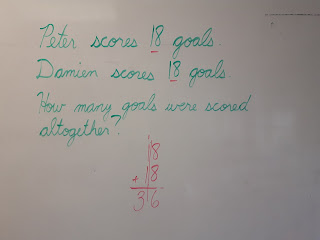 Peter scores 18 goals.
Damien scores 18 goals.
How many goals were scored
altogether?
18
+ 18
36